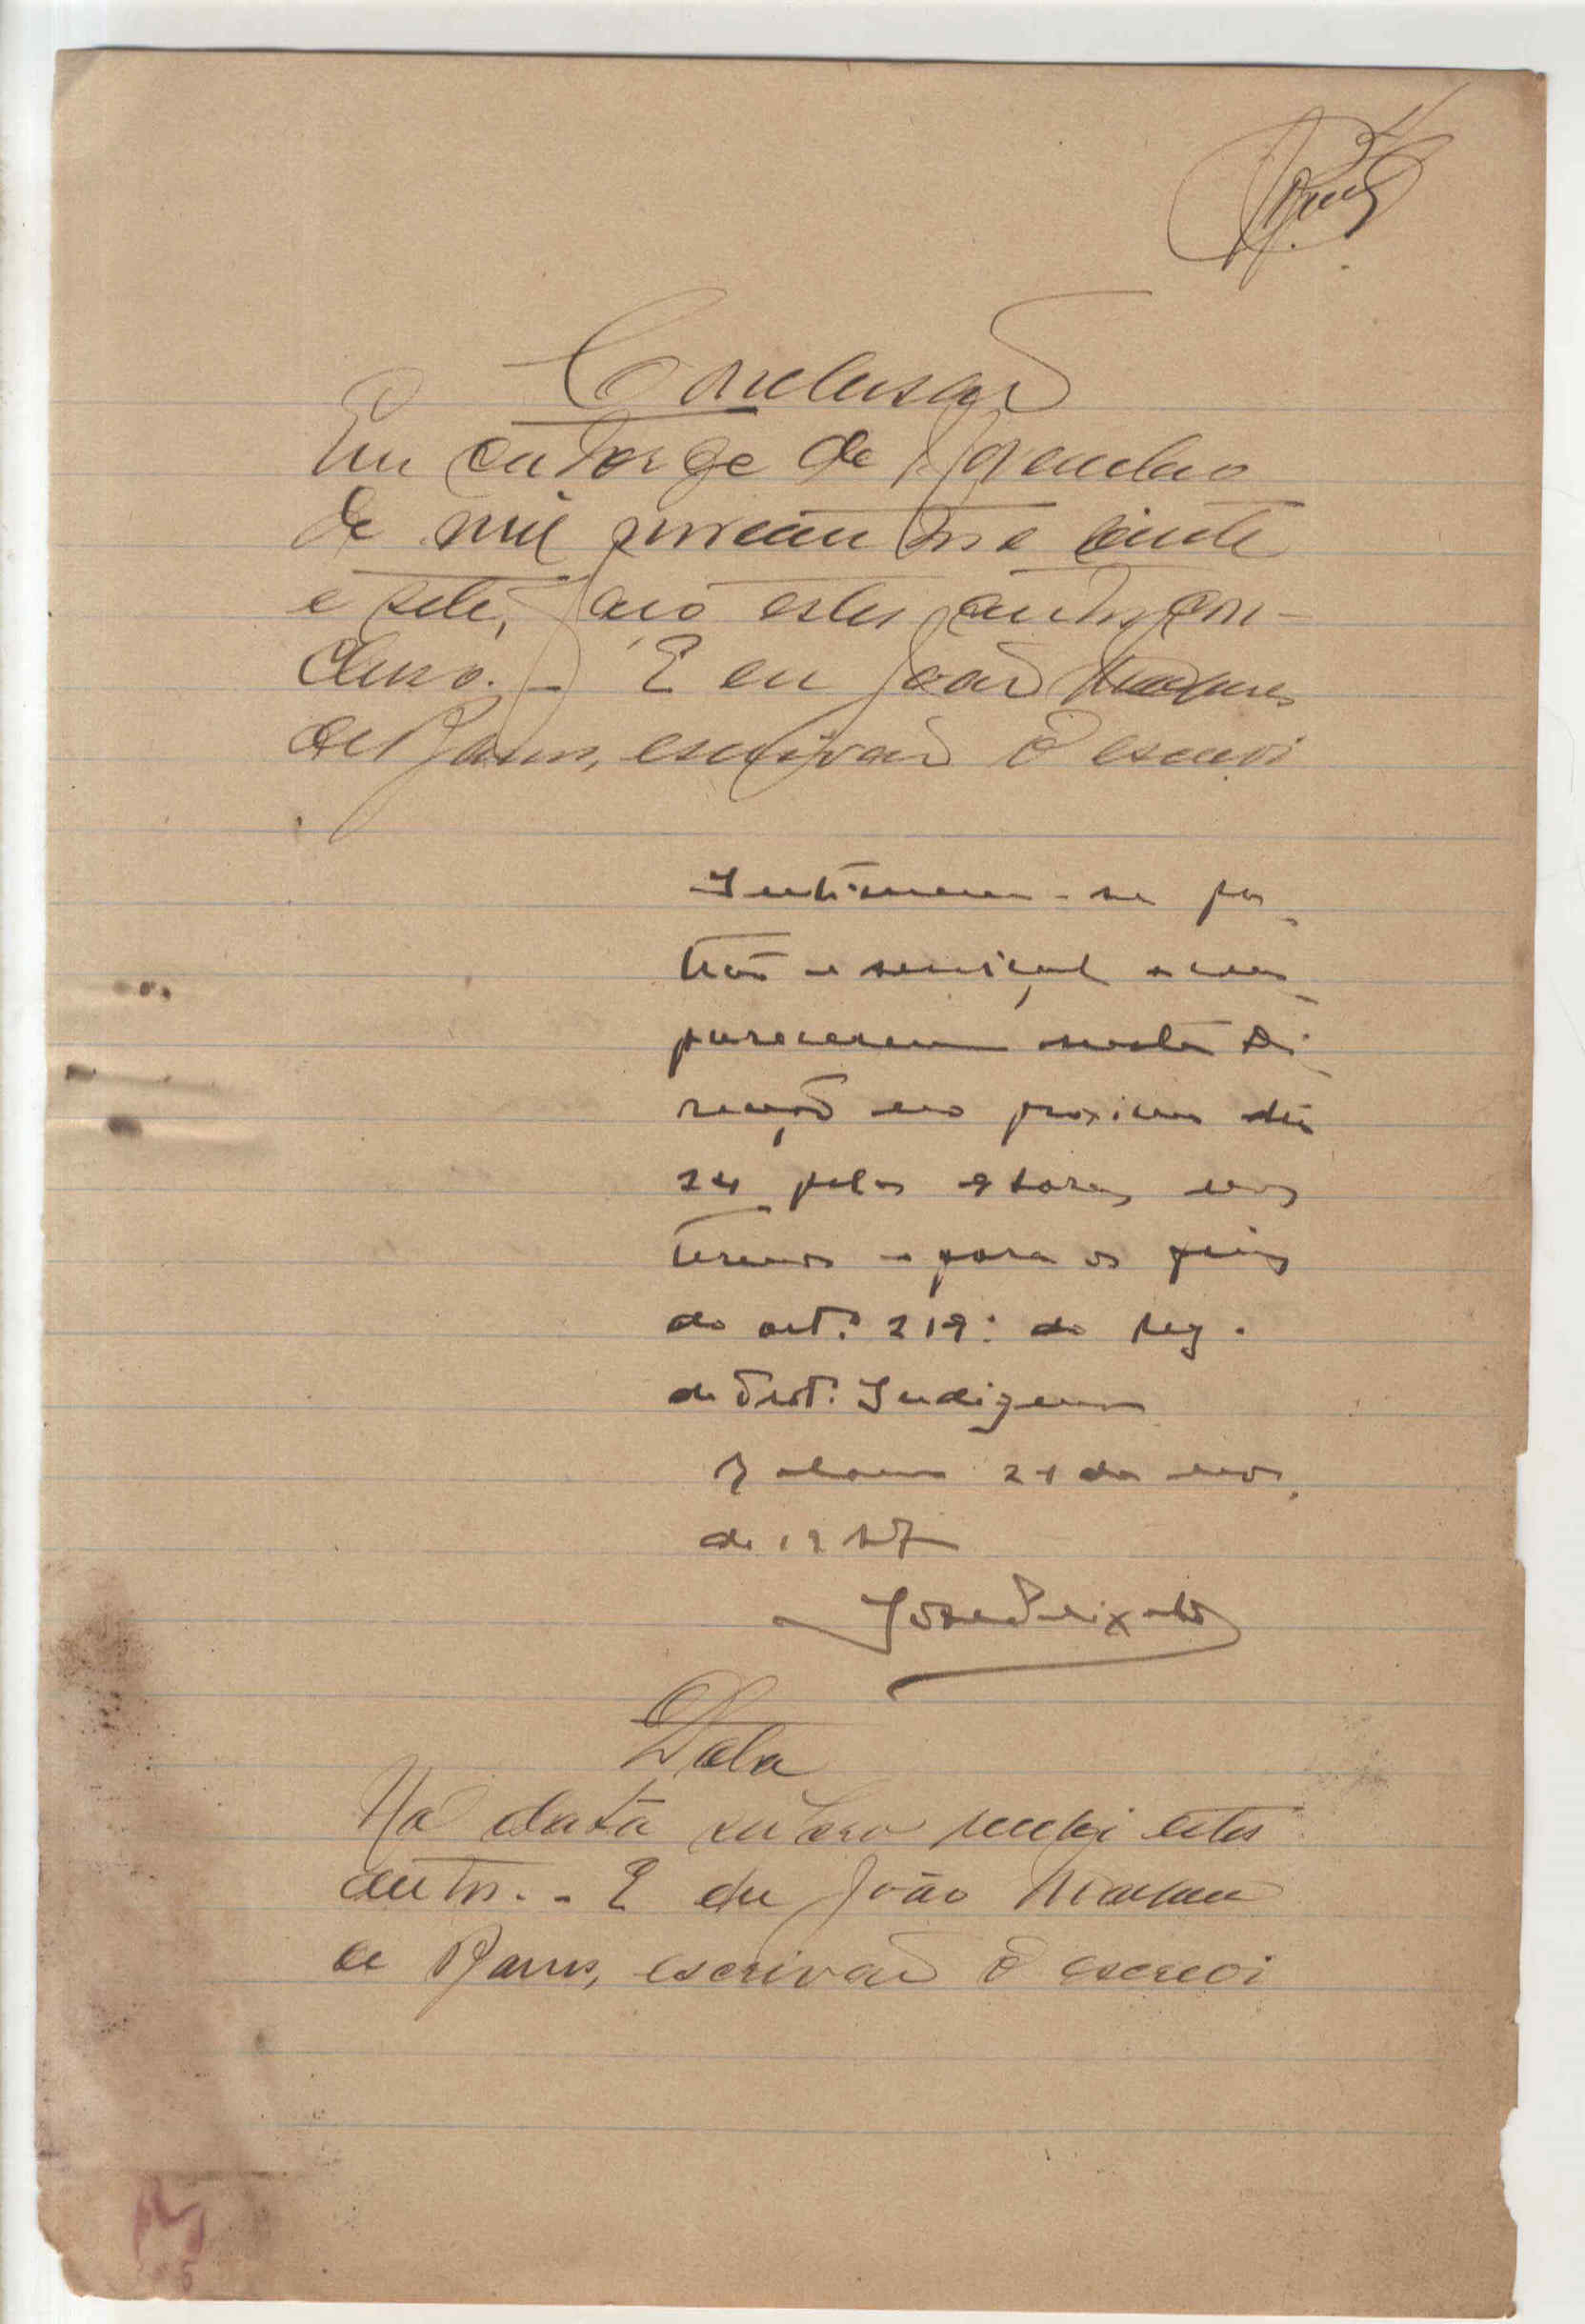 Conclusão
Em catorze de Novembro
de mil novecentos e vinte
e sete, faço estes autos con-
clusos. - E eu João Marques
de Barros, escrivão o escrevi
Intimem-se pa-
trão e serviçal a com-
parecerem nesta Di-
recção no proximo dia
24 pelas 9 horas, nos
termos e para os fins
do art.º 219º do Reg.
de Trab. Indigena
21 de nov.
de 1927
José Peixoto
Data
Na data supra recebi estes
autos. - E eu João Marques
de Barros, escrivão o escrevi